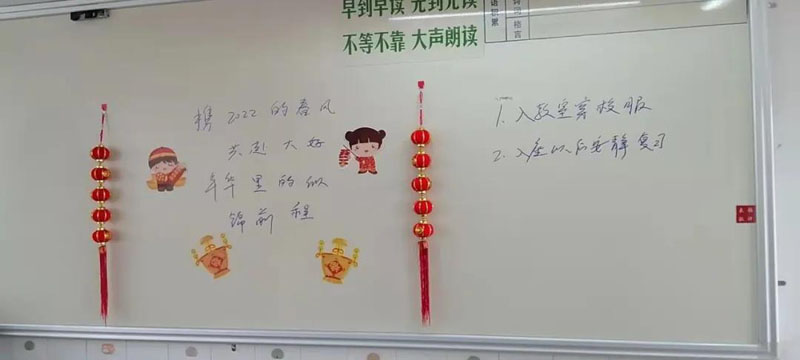 早到早读 先到先读
不等不靠 大声朗读
积累
格言
携2022的春风
共赴大好
年华里的似
锦前程
1. 入教室穿校服
2. 入座以后安静复习